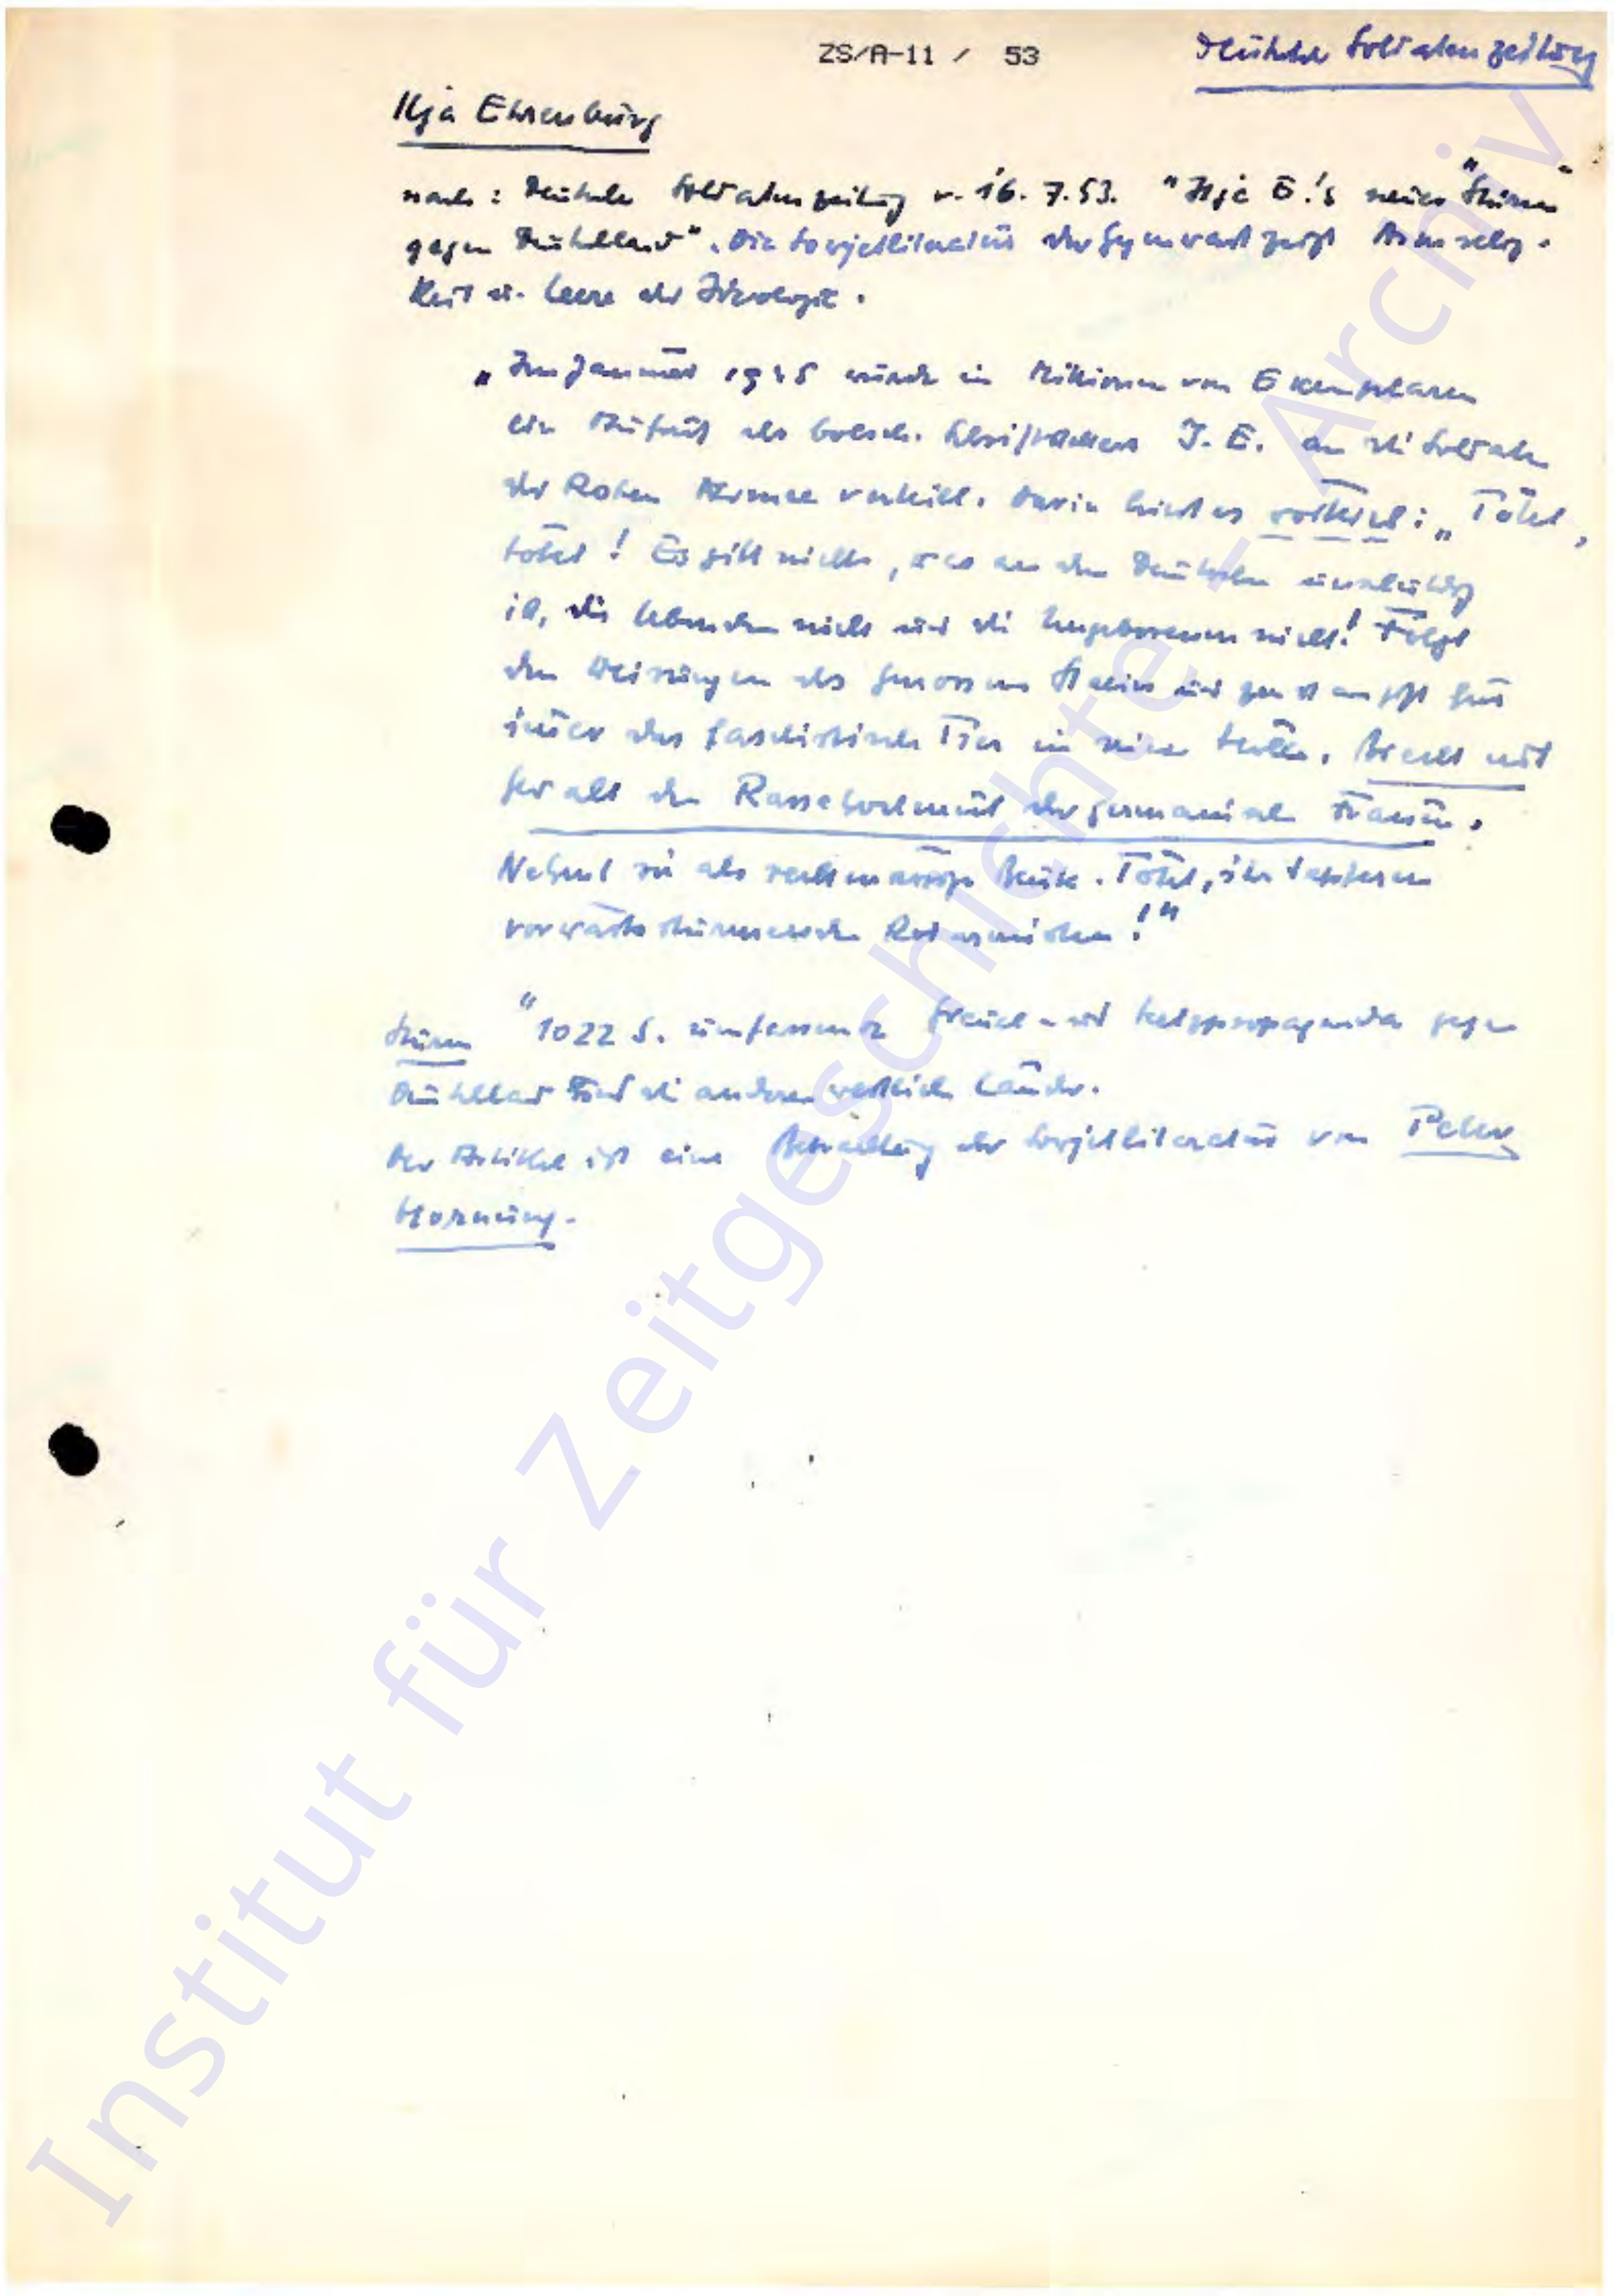 ZS/A-11 / 53
Deutsche Soldatenzeitung
Ilja Ehrenburg
nach: Deutsche Soldatenzeitung v. 16. 7. 53. "Ilja E.'s neuer "Sturm"
gegen Deutschland". Die Sowjetliteratur der Gegenwart zeigt Armselig-
keit u. Leere der Ideologie.
"Im Januar 1945 wurde in Millionen von Exemplaren
ein Aufruf des bolsch. Schriftstellers I. E. an die Soldaten
der Roten Armee verteilt. Darin hiess es wörtlich: "Tötet,
tötet! Es gibt nichts, was an den Deutschen unschuldig
ist, die Lebenden nicht und die Ungeborenen nicht! Folgt
den Weisungen des Genossen Stalin und zerstampft für
immer das faschistische Tier in seiner Höhle. Brecht mit
Gewalt den Rassehochmut der germanischen Frauen.
Nehmt sie als rechtmässige Beute. Tötet, ihr tapferen
vorwärtsstürmenden Rotarmisten!"
Sturm "1022 S. umfassende Greuel- und Hetzpropaganda gegen
Deutschland und die anderen westlichen Länder.
Der Artikel ist eine Betrachtung der Sowjetliteratur von Peter
Hornung.
Institut für Zeitgeschichte - Archiv